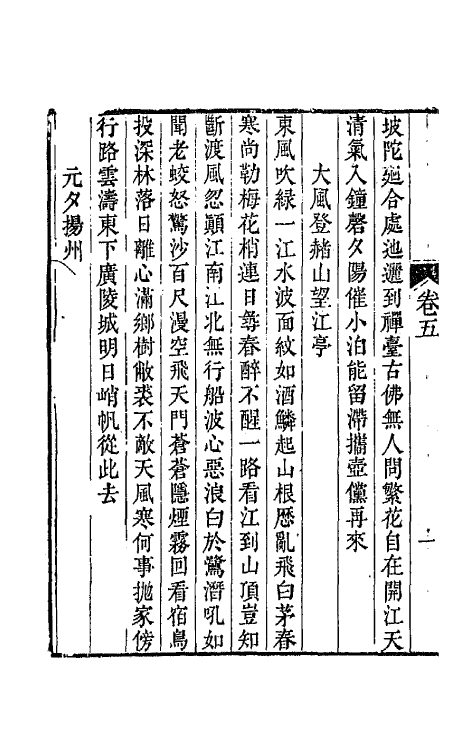 卷五
一
坡陀廻合處迆邐到禪臺古佛無人問繁花自在開江天
清氣入鐘磬夕陽催小泊能留滯攜壺儻再來
大風登赭山望江亭
東風吹綠一江水波面紋如酒鱗起山根歷亂飛白茅春
寒尚勒梅花梢連日尋春醉不醒一路看江到山頂豈知
斷渡風忽顛江南江北無行船波心惡浪白於鷺潛吼如
聞老蛟怒驚沙百尺漫空飛天門蒼蒼隱煙霧回看宿鳥
投深林落日離心滿鄉樹敝裘不敵天風寒何事抛家傍
行路雲濤東下廣陵城明日峭帆從此去
元夕揚州